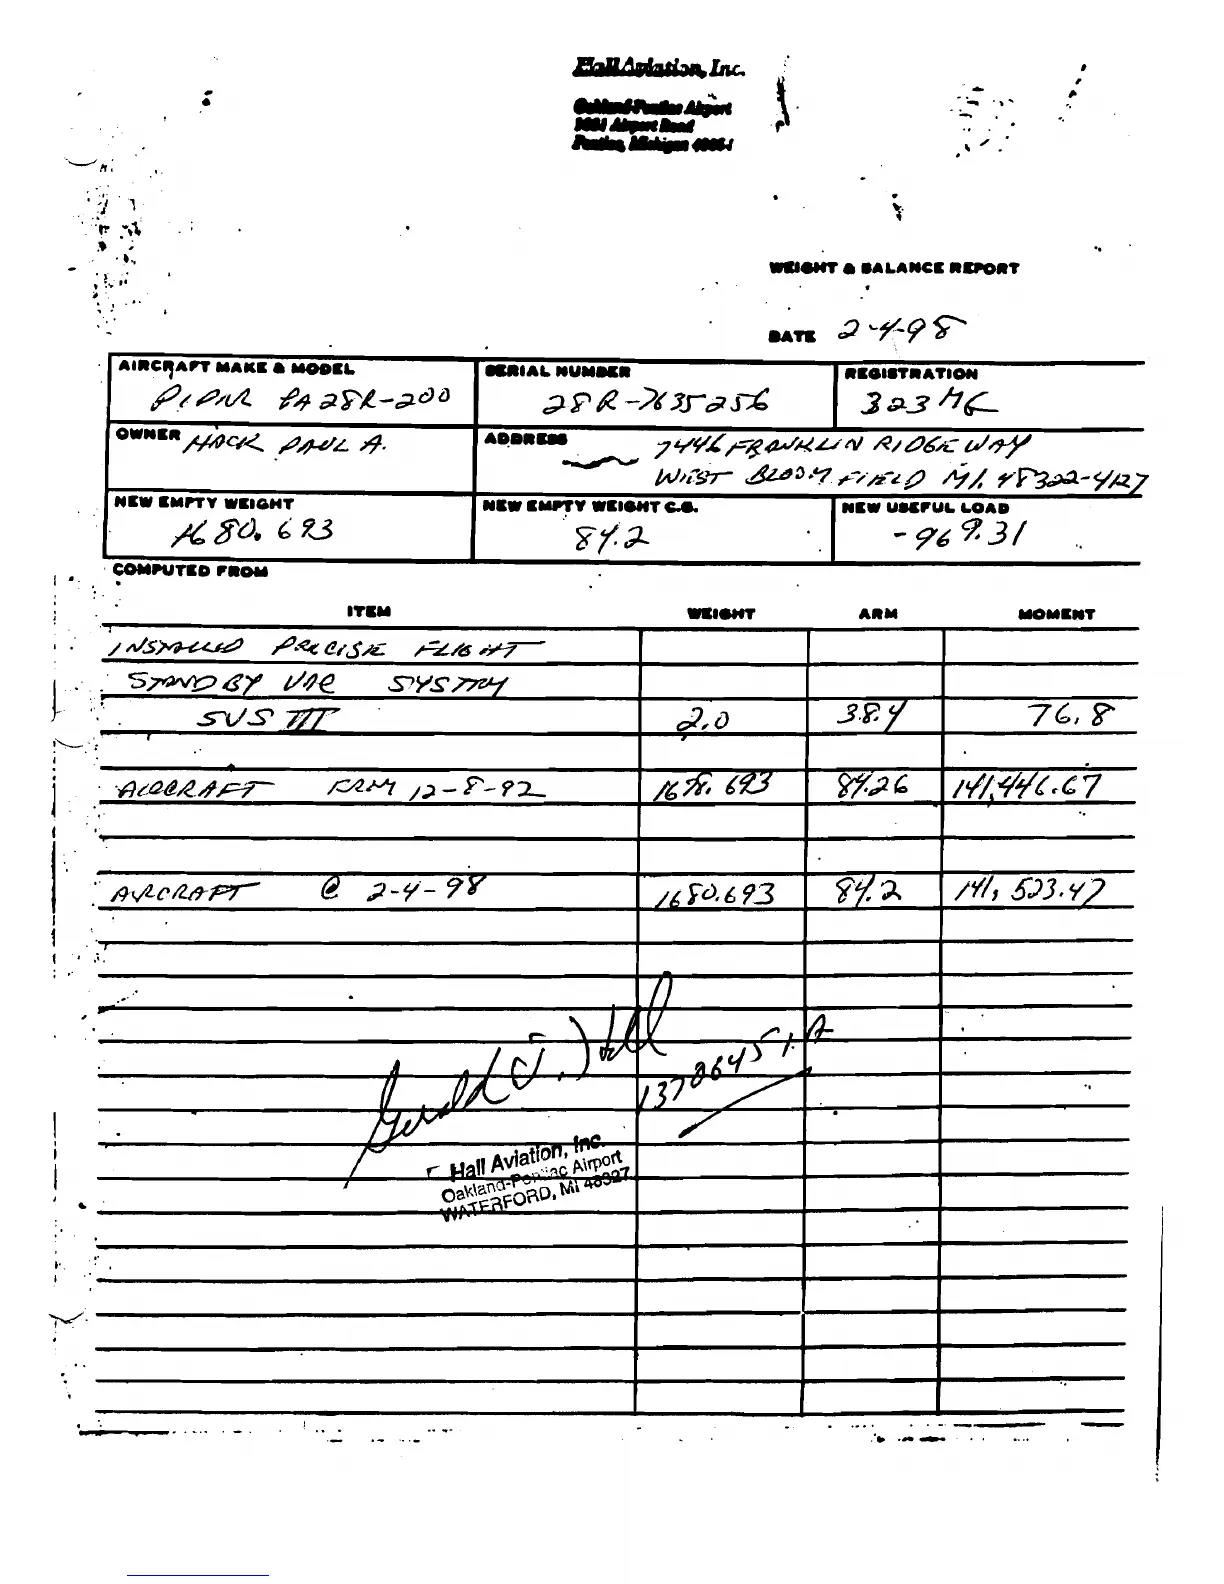 Hall Aviation, Inc.
Oakland-Pontiac Airport
Airport Road
Pontiac, Michigan
WEIGHT & BALANCE REPORT
DATE 2-4-98
AIRCRAFT MAKE & MODEL SERIAL NUMBER REGISTRATION
PIPER PA28R-200 28R-7635256 323MG
OWNER HACK PAUL A. ADDRESS 7446 FRANKLIN RIDGE WAY
WEST BLOOMFIELD MI. 48322-4127
NEW EMPTY WEIGHT NEW EMPTY WEIGHT C.G. NEW USEFUL LOAD
1680.693 84.2 -969.31
COMPUTED FROM
ITEM WEIGHT ARM MOMENT
INSTALLED PRECISE FLIGHT
STANDBY VAC SYSTEM
SVS III 2.0 38.4 76.8
AIRCRAFT FRM 12-8-92 1678.693 84.26 141,446.67
AIRCRAFT @ 2-4-98 1680.693 84.2 141,523.47
Gerald J. Hall 137066451A
Hall Aviation, Inc.
Oakland-Pontiac Airport
WATERFORD, MI 48327